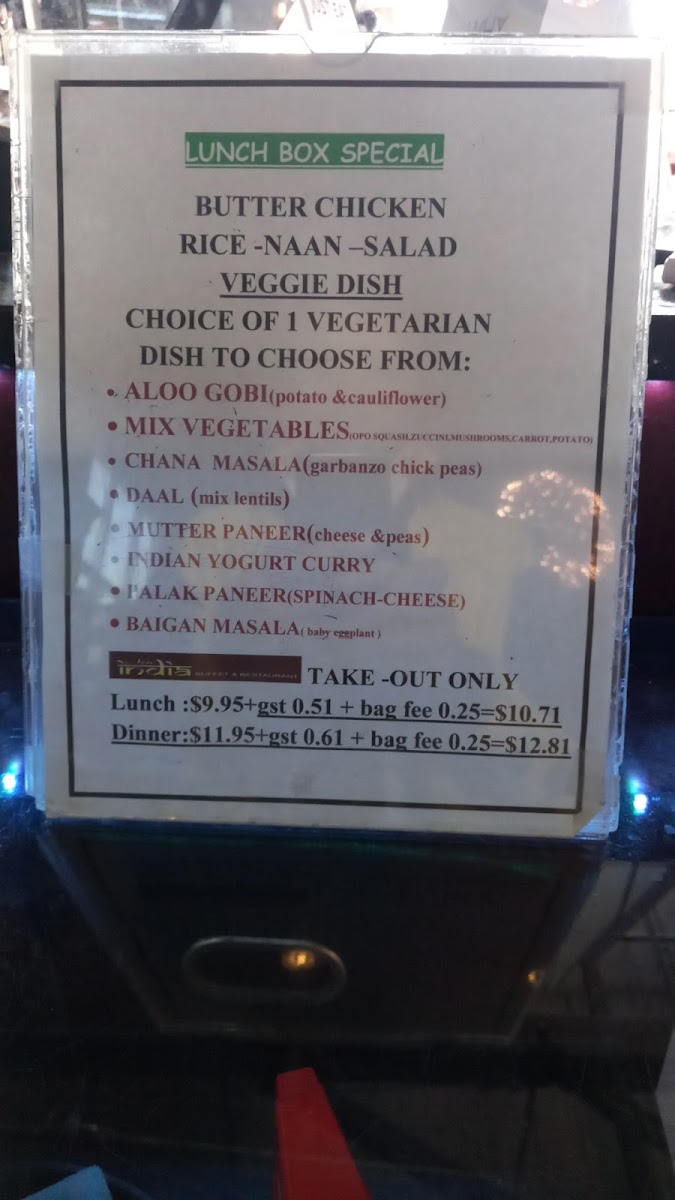 WHY
LUNCH BOX SPECIAL
BUTTER CHICKEN
RICE -NAAN –SALAD
VEGGIE DISH
CHOICE OF 1 VEGETARIAN
DISH TO CHOOSE FROM:
• ALOO GOBI(potato &cauliflower)
• MIX VEGETABLES(OPO SQUASH,ZUCCINI,MUSHROOMS,CARROT,POTATO)
• CHANA MASALA(garbanzo chick peas)
• DAAL (mix lentils)
• MUTTER PANEER(cheese &peas)
• INDIAN YOGURT CURRY
• PALAK PANEER(SPINACH-CHEESE)
• BAIGAN MASALA( baby eggplant )
india BUFFET & RESTAURANT TAKE -OUT ONLY
Lunch :$9.95+gst 0.51 + bag fee 0.25=$10.71
Dinner:$11.95+gst 0.61 + bag fee 0.25=$12.81